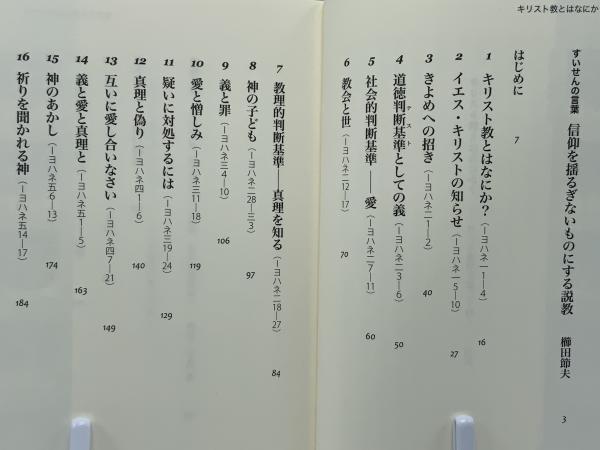 キリスト教とはなにか
すいせんの言葉 信仰を揺るぎないものにする説教 櫛田節夫 3
はじめに 7
1 キリスト教とはなにか？（Iヨハネ一1―4） 16
2 イエス・キリストの知らせ（Iヨハネ一5―10） 27
3 きよめへの招き（Iヨハネ二1―2） 40
4 道徳判断基準としての義（Iヨハネ二3―6） 50
テスト
5 社会的判断基準――愛（Iヨハネ二7―11） 60
6 教会と世（Iヨハネ二12―17） 70
7 教理的判断基準――真理を知る（Iヨハネ二18―27） 84
8 神の子ども（Iヨハネ二28―三3） 97
9 義と罪（Iヨハネ三4―10） 106
10 愛と憎しみ（Iヨハネ三11―18） 119
11 疑いに対処するには（Iヨハネ三19―24） 129
12 真理と偽り（Iヨハネ四1―6） 140
13 互いに愛し合いなさい（Iヨハネ四7―21） 149
14 義と愛と真理と（Iヨハネ五1―5） 163
15 神のあかし（Iヨハネ五6―13） 174
16 祈りを聞かれる神（Iヨハネ五14―17） 184